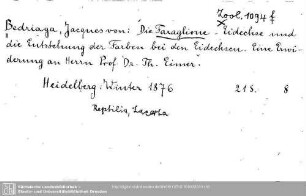 Zool. 1094 f
Bedriaga, Jacques von: Die Faraglione-Eidechse und
die Entstehung der Farben bei den Eidechsen. Eine Erwi-
derung an Herrn Prof. Dr. Th. Eimer.
Heidelberg: Winter 1876 21 S. 8
Reptilia, Lacerta
Sächsische Landesbibliothek -
Staats- und Universitätsbibliothek Dresden